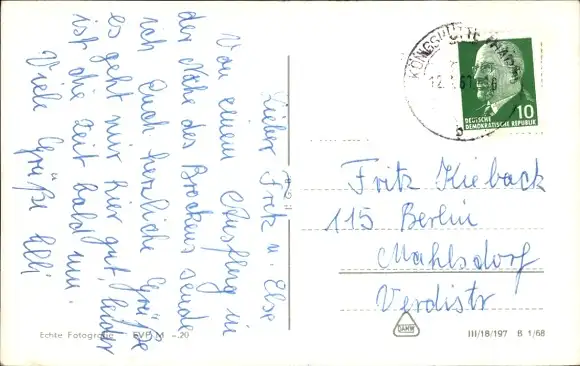 Lieber Fritz u. Else
Von einem Ausflug in
der Nähe des Brockens sende
ich Euch herzliche Grüße
es geht mir hier gut, leider
ist die Zeit bald um.
Viele Grüße Elli
KÖNIGSHÜTTE
DEUTSCHE
DEMOKRATISCHE REPUBLIK
10
Fritz Kieback
115 Berlin
Mahlsdorf
Verdistr
Echte Fotografie EVP M -.20
DAHW
III/18/197 B 1/68